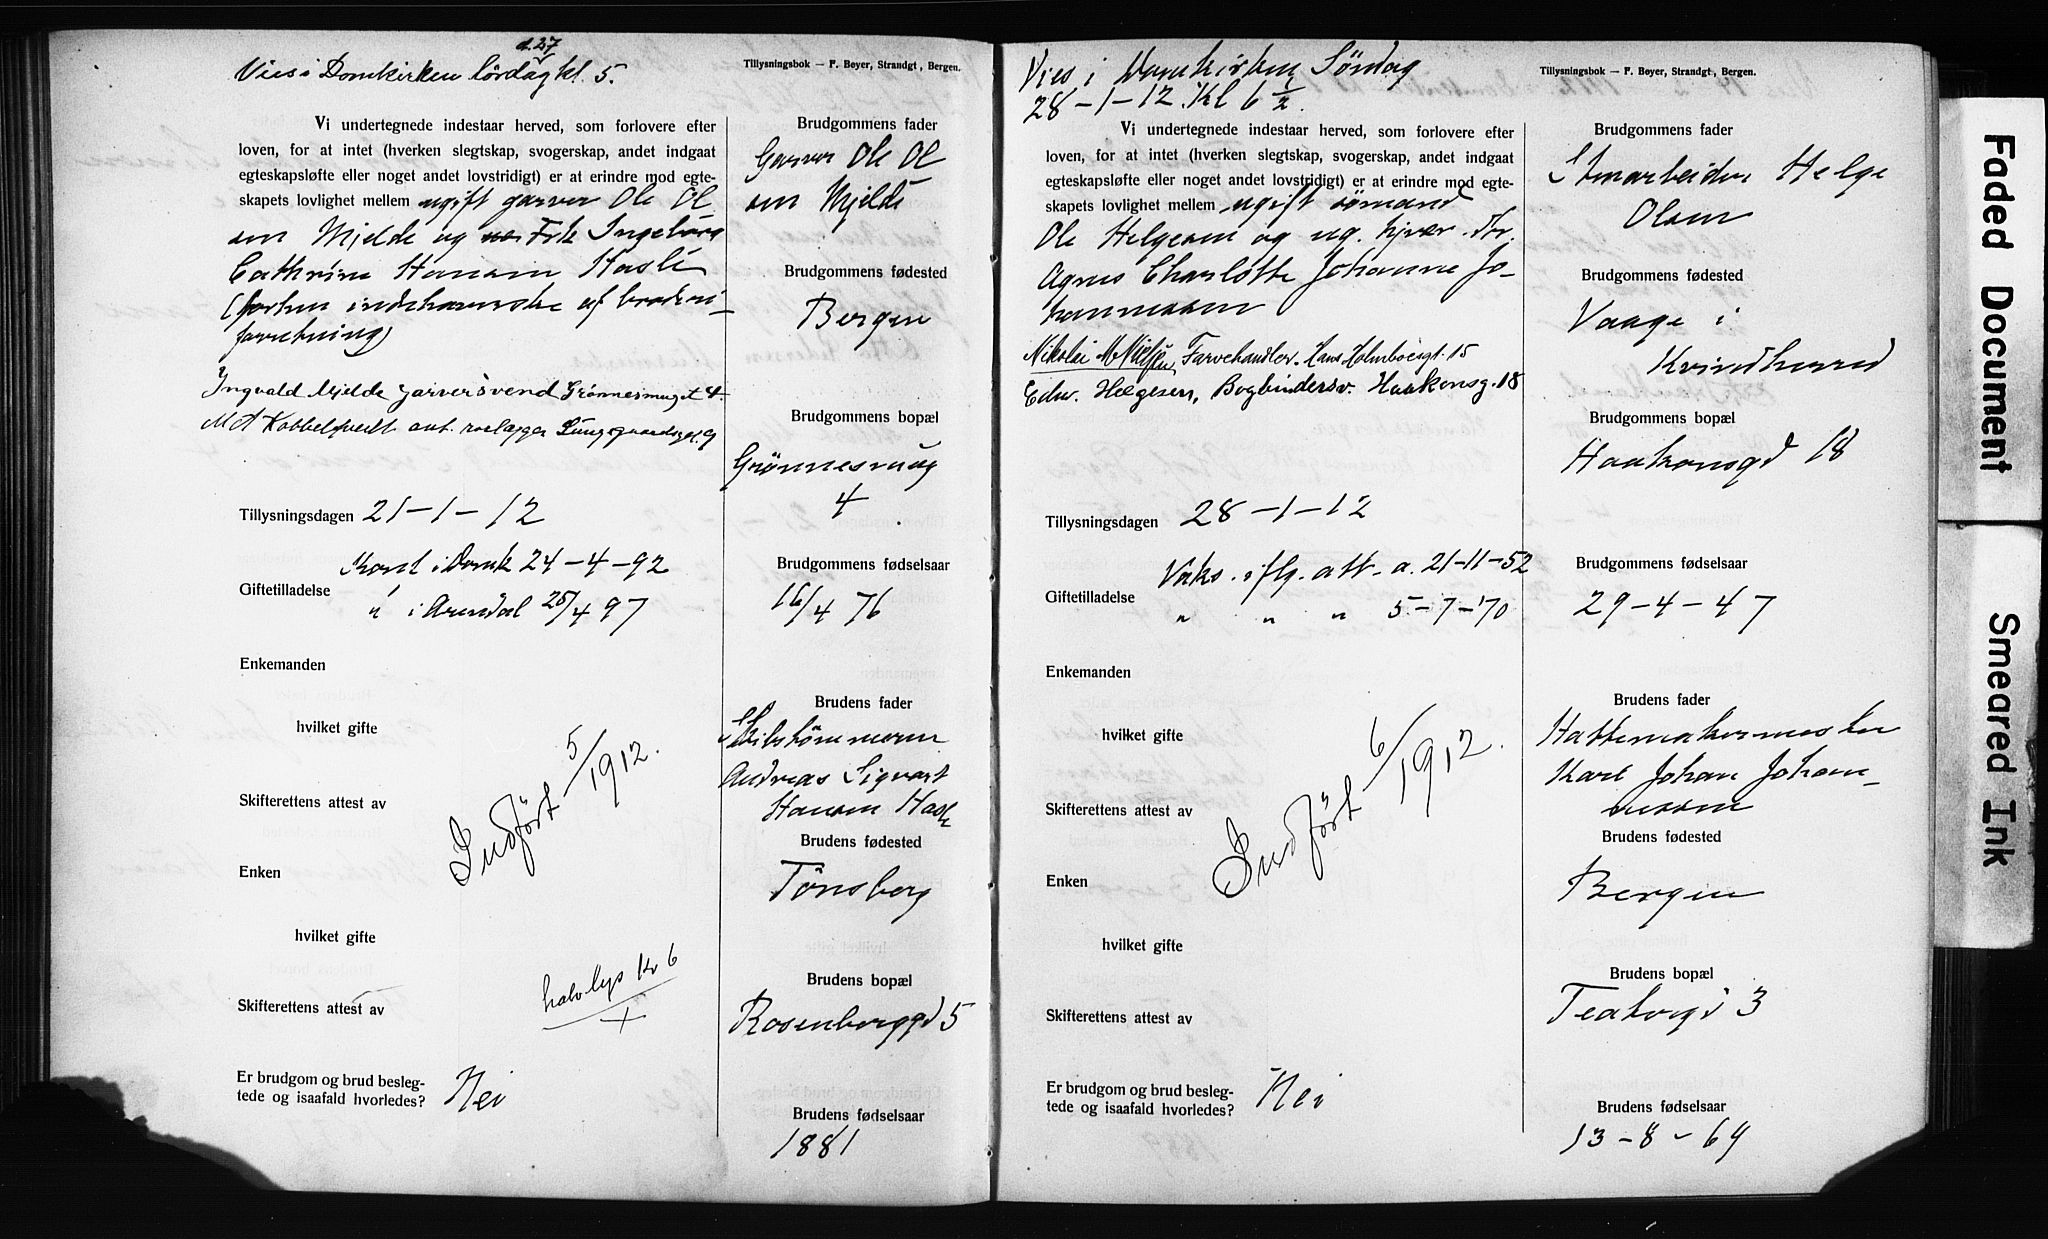 d. 27
Vies i Domkirken lördag kl. 5.
Tillysningsbok — F. Bøyer, Strandgt, Bergen.
Vi undertegnede indestaar herved, som forlovere efter
loven, for at intet (hverken slegtskap, svogerskap, andet indgaat
egteskapsløfte eller noget andet lovstridigt) er at erindre mod egte-
skapets lovlighet mellem ugift garver Ole Ol
sen Mjelde og Frk Ingeborg
Cathrine Hansen Hasle
(forhen indehaverske af broderi-
forretning)
Ingvald Mjelde garversvend Grönnesmuget 4.
M A Kobbeltvedt aut. rørlægger Lungegaardsgt. 9
Tillysningsdagen 21-1-12
Konf. i Domk 24-4-92
Giftetilladelse " i Arendal 25/4 97
Enkemanden
hvilket gifte
Skifterettens attest av
Indført 5/1912.
Enken
hvilket gifte
halv lys Kr 6
Skifterettens attest av
Er brudgom og brud besleg-
tede og isaafald hvorledes? Nei
Brudgommens fader
Garver Ole Ol
sen Mjelde
Brudgommens fødested
Bergen
Brudgommens bopæl
Grönnesmug
4
Brudgommens fødselsaar
16/4 76
Brudens fader
Skibstömmerm
Andreas Sigvart
Hansen Hasle
Brudens fødested
Tönsberg
Brudens bopæl
Rosenberggd 5
Brudens fødselsaar
1881
Vies i Domkirken Söndag
28-1-12. Kl 6 1/2
Tillysningsbok — F. Bøyer, Strandgt, Bergen.
Vi undertegnede indestaar herved, som forlovere efter
loven, for at intet (hverken slegtskap, svogerskap, andet indgaat
egteskapsløfte eller noget andet lovstridigt) er at erindre mod egte-
skapets lovlighet mellem ugift sömand
Ole Helgesen og ug. hjvær. dtr.
Agnes Charlotte Johanne Jo-
hannessen
Nikolai M Nielsen, Farvehandler, Hans Holmboesgt. 15
Edw. Helgesen, Bogbindersv. Haakonsg. 18
Tillysningsdagen 28-1-12
Vaks. iflg. att. a. 21-11-52
Giftetilladelse " " " 5-7-70
Enkemanden
hvilket gifte
Skifterettens attest av
Indført 6/1912.
Enken
hvilket gifte
Skifterettens attest av
Er brudgom og brud besleg-
tede og isaafald hvorledes? Nei
Brudgommens fader
Stenarbeider Helge
Olsen
Brudgommens fødested
Vaage i
Kvindherred
Brudgommens bopæl
Haakonsgd 18
Brudgommens fødselsaar
29-4-47
Brudens fader
Hattemakermester
Karl Johan Johan-
nessen
Brudens fødested
Bergen
Brudens bopæl
Teatergd 3
Brudens fødselsaar
13-8-64
Faded Document
Smeared Ink